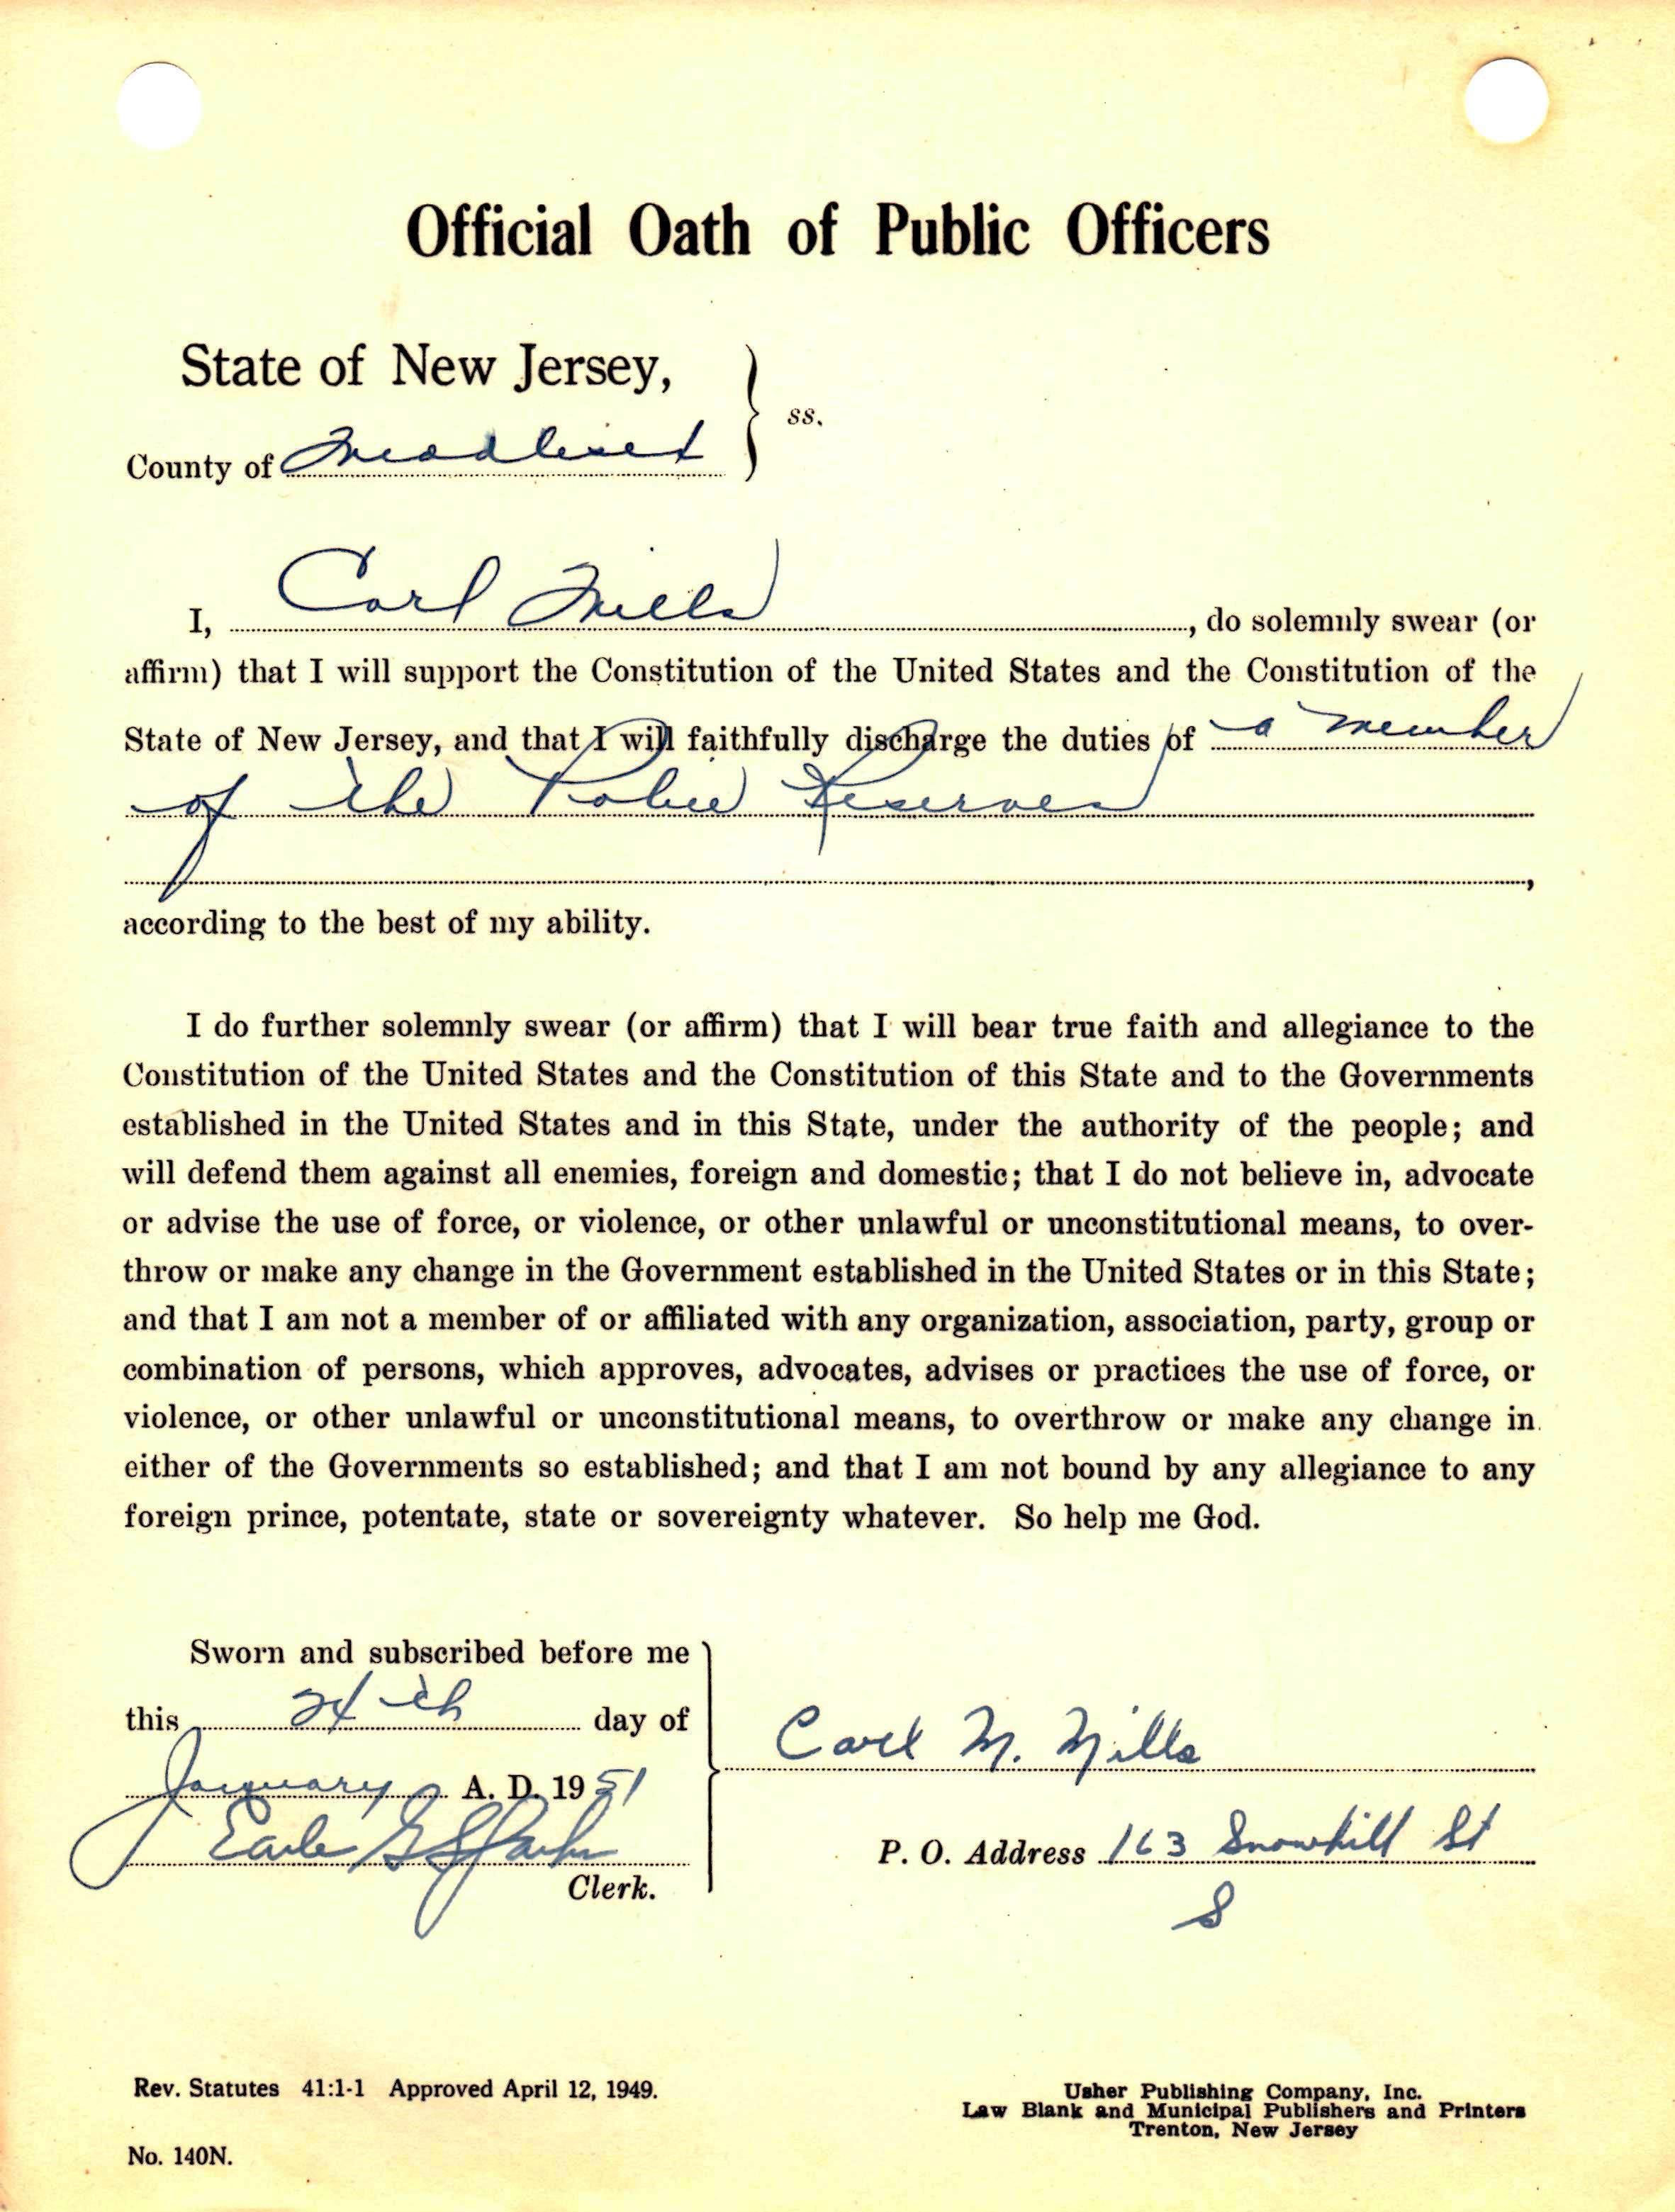 Official Oath of Public Officers
State of New Jersey,
ss.
County of Middlesex
I, Carl Mills, do solemnly swear (or
affirm) that I will support the Constitution of the United States and the Constitution of the
State of New Jersey, and that I will faithfully discharge the duties of a member
of the Police Reserves
,
according to the best of my ability.
I do further solemnly swear (or affirm) that I will bear true faith and allegiance to the
Constitution of the United States and the Constitution of this State and to the Governments
established in the United States and in this State, under the authority of the people; and
will defend them against all enemies, foreign and domestic; that I do not believe in, advocate
or advise the use of force, or violence, or other unlawful or unconstitutional means, to over-
throw or make any change in the Government established in the United States or in this State;
and that I am not a member of or affiliated with any organization, association, party, group or
combination of persons, which approves, advocates, advises or practices the use of force, or
violence, or other unlawful or unconstitutional means, to overthrow or make any change in
either of the Governments so established; and that I am not bound by any allegiance to any
foreign prince, potentate, state or sovereignty whatever. So help me God.
Sworn and subscribed before me
this 24th day of
January A. D. 1951
Earle
Clerk.
Carl M. Mills
P. O. Address 163 Snowhill St
S
Rev. Statutes 41:1-1 Approved April 12, 1949.
No. 140N.
Usher Publishing Company, Inc.
Law Blank and Municipal Publishers and Printers
Trenton, New Jersey